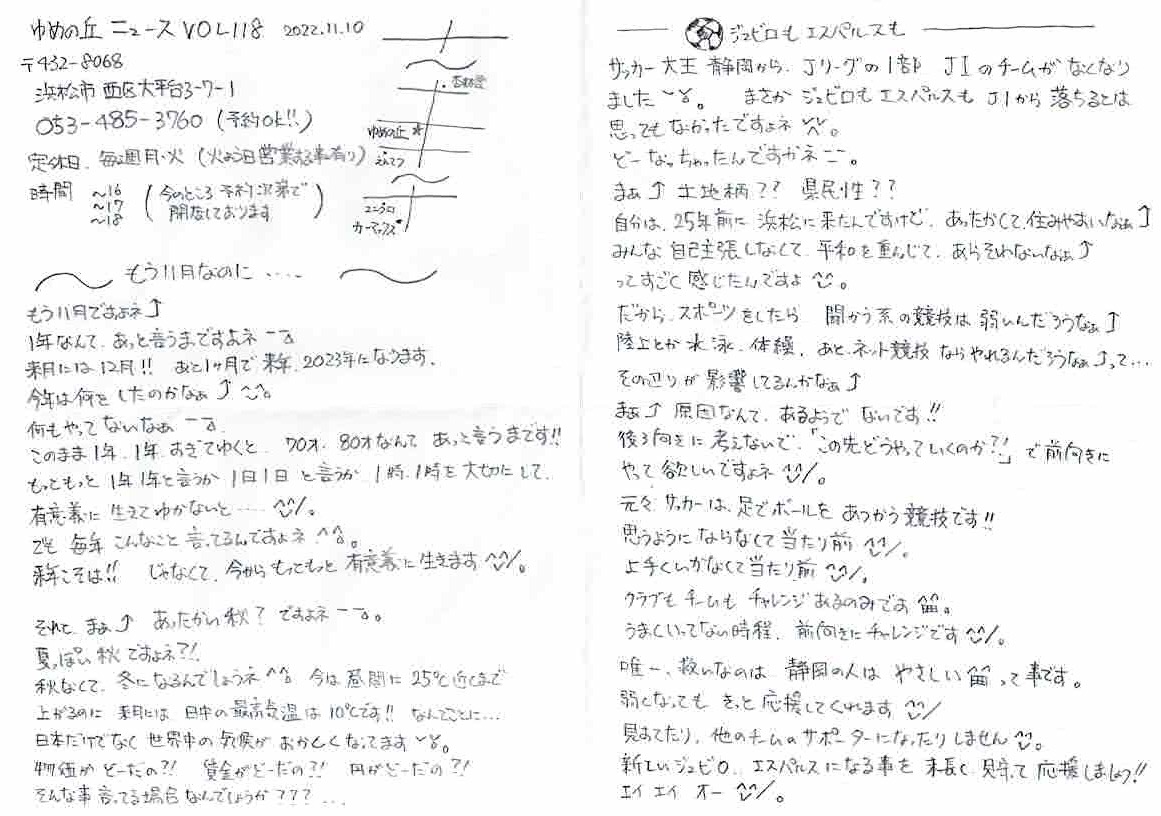 ゆめの丘 ニュース VOL118 2022.11.10
〒432-8068
浜松市 西区大平台3-7-1
053-485-3760 (予約OK!!)
定休日. 毎週月・火 (火よう日営業する事有り)
時間 ~16
~17
~18
(今のところ 予約次第で
開店しております)
杏林堂
ゆめの丘 *
えんてつ
ユニクロ
カーマックス
もう11月なのに ....
もう11月ですよネ↑
1年なんて、あっと言うまですよネ
来月には12月!! あと1ヶ月で来年、2023年になります.
今年は何をしたのかなぁ↑ ^^。
何もやってないなぁ
このまま1年、1年、すぎてゆくと、70才、80才なんて あっと言うまです!!
もっともっと 1年1年と言うか 1日1日と言うか 1時、1時を大切にして、
有意義に生きてゆかないと.... ^^/。
でも 毎年 こんなこと言ってるんですよネ ^^。
来年こそは!! じゃなくて、今からもっともっと 有意義に生きます ^^/。
それと、まぁ↑ あったかい秋? ですよネ 。
夏っぽい秋ですよネ?!.
秋なくて、冬になるんでしょうネ ^^。 今は昼間に 25℃近くまで
上がるのに 来月には 日中の最高気温は10℃です!! なんてことに...
日本だけでなく 世界中の気候が おかしくなってます 。
物価がどーだの?! 賃金がどーだの?! 円がどーだの?!
そんな事言ってる場合なんでしょうか??? ...
ジュビロも エスパルスも
サッカー大王 静岡から、Jリーグの1部 J1のチームがなくなり
ました 。 まさか ジュビロも エスパルスも J1から 落ちるとは
思ってもなかったですよネ ^^。
どーなっちゃったんですかネ 。
まぁ↑ 土地柄?? 県民性??
自分は、25年前に浜松に来たんですけど、あったかくて、住みやすいなぁ↑
みんな 自己主張しなくて、平和を重んじて、あらそわないなぁ↑
ってすごく感じたんですよ ^^。
だから、スポーツをしたら 闘かう系の競技は 弱いんだろうなぁ↑
陸上とか水泳、体操、あと、ネット競技ならやれるんだろうなぁ↑って...
その辺りが影響してるんかなぁ↑
まぁ↑ 原因なんて、あるようで ないです!!
後ろ向きに考えないで、「この先どうやっていくのか?!」で前向きに
やって欲しいですよネ ^^/。
元々 サッカーは、足でボールを あつかう競技です!!
思うようにならなくて当たり前 ^^/。
上手くいかなくて当たり前 ^^/。
クラブも チームも チャレンジあるのみです 。
うまくいってない時程、前向きにチャレンジです ^^/。
唯一、救いなのは、静岡の人は やさしい って事です。
弱くなっても きっと応援してくれます ^^/
見すてたり、他のチームのサポーターになったりしません ^^。
新しいジュビロ、エスパルスになる事を 末長く見守って応援しましょう!!
エイ エイ オー ^^/。